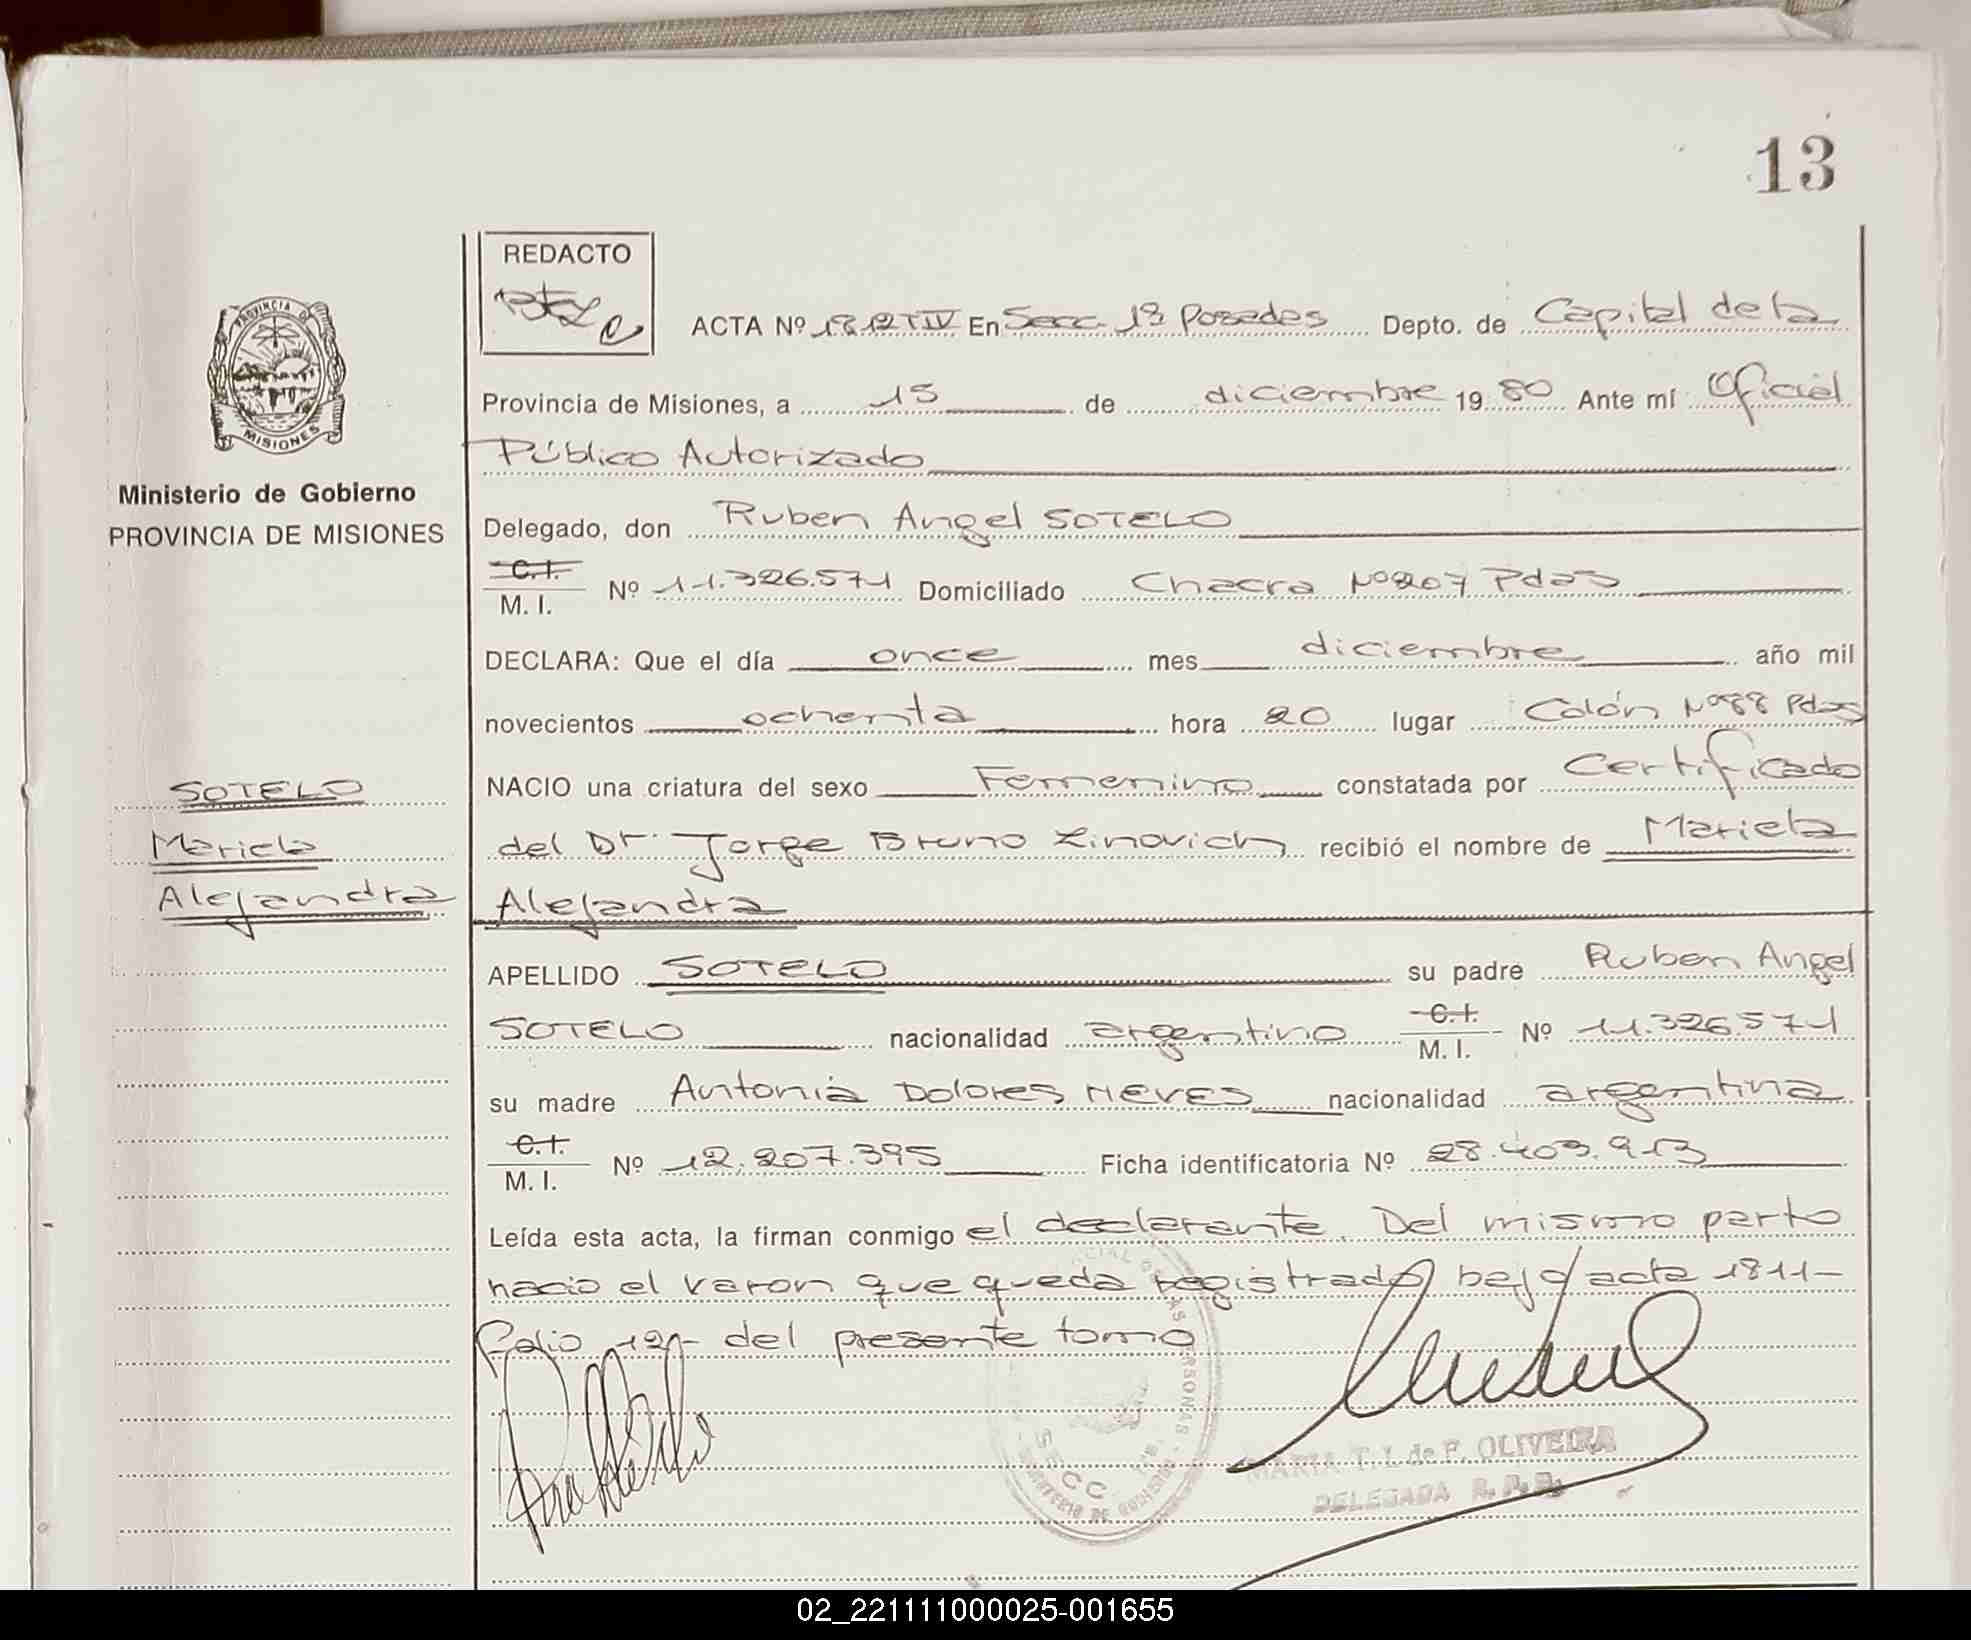 13
REDACTO
PROVINCIA DE
MISIONES
Ministerio de Gobierno
PROVINCIA DE MISIONES
ACTA Nº 1812 TIV En Secc. 1ª Posadas Depto. de Capital de la
Provincia de Misiones, a 15 de diciembre 1980 Ante mí Oficial
Público Autorizado
Delegado, don Ruben Angel SOTELO
C.I. M. I. Nº 11.326.571 Domiciliado Chacra Nº207 Pdas
DECLARA: Que el día once mes diciembre año mil
novecientos ochenta hora 20 lugar Colón Nº88 Pdas
NACIO una criatura del sexo Femenino constatada por Certificado
del Dr. Jorge Bruno Zinovich recibió el nombre de Mariela
Alejandra
SOTELO
Mariela
Alejandra
APELLIDO SOTELO su padre Ruben Angel
SOTELO nacionalidad argentino C.I. M. I. Nº 11.326.571
su madre Antonia Dolores NEVES nacionalidad argentina
C.I. M. I. Nº 12.207.395 Ficha identificatoria Nº 28.403.913
Leída esta acta, la firman conmigo el declarante. Del mismo parto
nacio el varon que queda registrado bajo acta 1811-
Folio 12- del presente tomo
SECC
MARIA T. I. de F. OLIVEIRA
DELEGADA R. P. P.
02_221111000025-001655